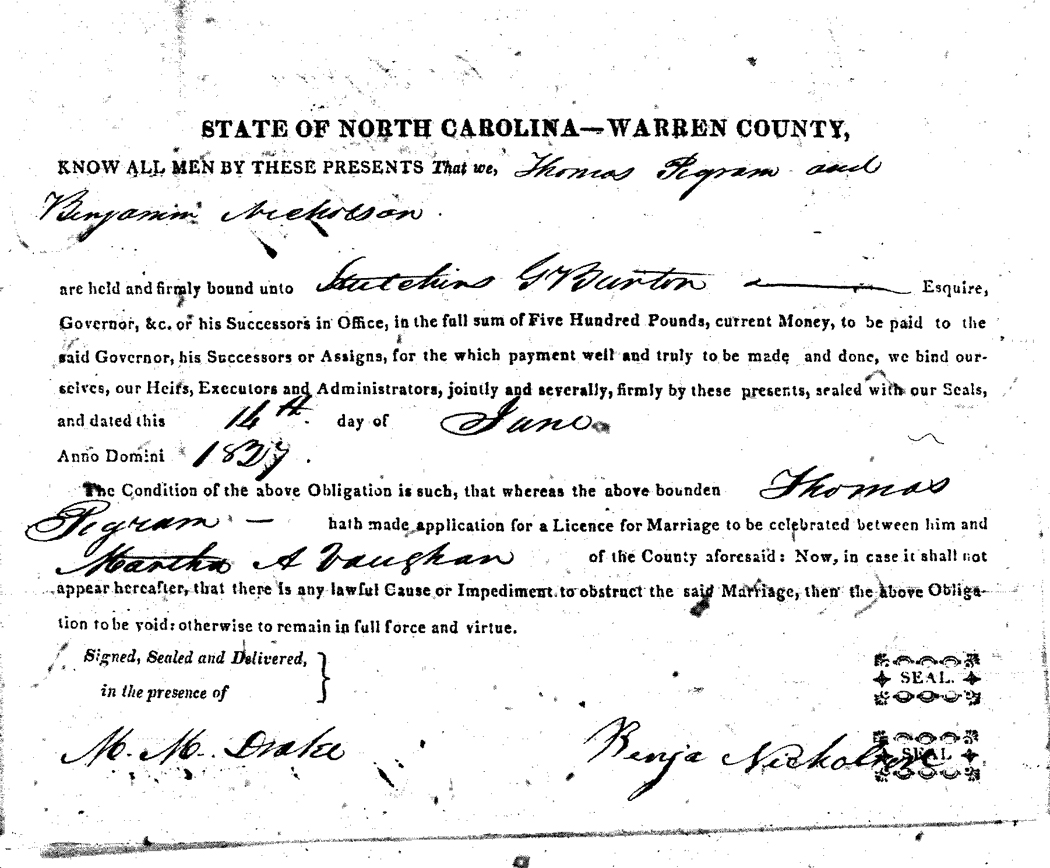 STATE OF NORTH CAROLINA—WARREN COUNTY,
KNOW ALL MEN BY THESE PRESENTS That we, Thomas Pegram and
Benjamin Nicholson.
are held and firmly bound unto Hutchins G Burton Esquire,
Governor, &c. or his Successors in Office, in the full sum of Five Hundred Pounds, current Money, to be paid to the
said Governor, his Successors or Assigns, for the which payment well and truly to be made and done, we bind our-
selves, our Heirs, Executors and Administrators, jointly and severally, firmly by these presents, sealed with our Seals,
and dated this 14th day of June
Anno Domini 1827.
The Condition of the above Obligation is such, that whereas the above bounden Thomas
Pegram — hath made application for a Licence for Marriage to be celebrated between him and
Martha A Vaughan of the County aforesaid: Now, in case it shall not
appear hereafter, that there is any lawful Cause or Impediment to obstruct the said Marriage, then the above Obliga-
tion to be void: otherwise to remain in full force and virtue.
Signed, Sealed and Delivered,
in the presence of
SEAL.
M. M. Drake Benja Nicholson SEAL